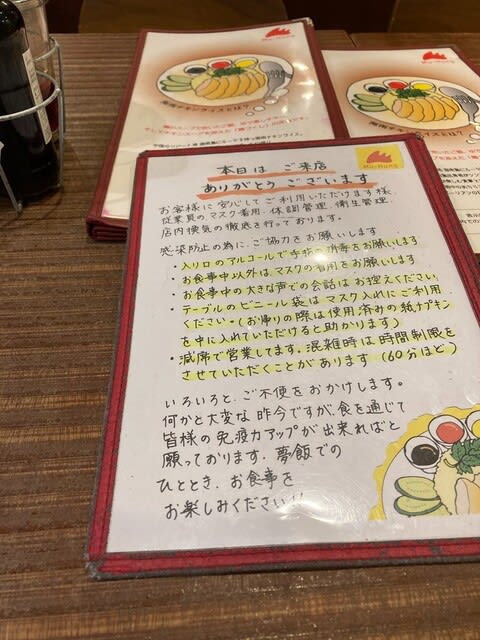 Mu-Hung
海南チキンライスとは?
本日は ご来店
ありがとう ございます
お客様に安心してご利用いただけます様、
従業員のマスク着用、体調管理、衛生管理、
店内換気の徹底を行っております。
感染防止の為に、ご協力をお願いします
・入り口のアルコールで手指の消毒をお願いします
・お食事中以外は、マスクの着用をお願いします
・お食事中の大きな声での会話はお控えください。
・テーブルのビニール袋はマスク入れにご利用
ください。(お帰りの際は使用済みの紙ナプキン
を中に入れていただけると助かります)
・減席で営業してます。混雑時は時間制限を
させていただくことがあります(60分ほど)
いろいろと、ご不便をおかけします。
何かと大変な昨今ですが、食を通じて
皆様の免疫力アップが出来ればと
願っております。夢飯での
ひととき、お食事を
お楽しみください!!